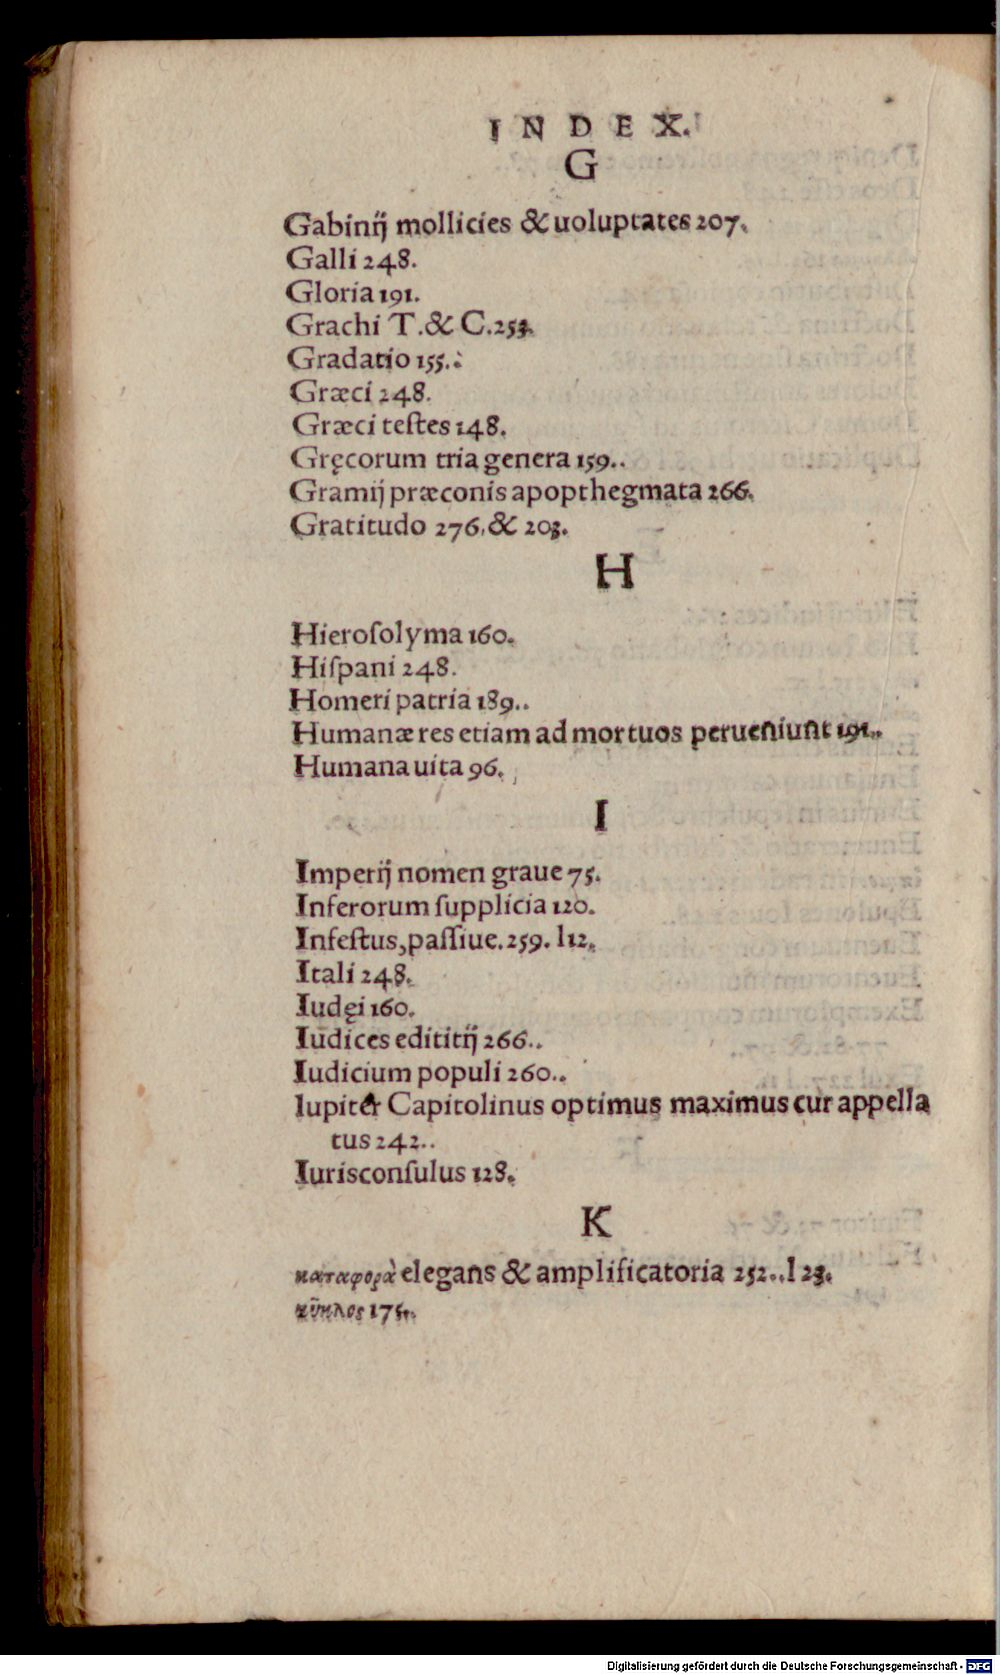 INDEX.
G
Gabinij mollicies & uoluptates 207.
Galli 248.
Gloria 191.
Grachi T. & C. 253.
Gradatio 155..
Græci 248.
Græci teſtes 148.
Gręcorum tria genera 159..
Gramij præconis apopthegmata 266.
Gratitudo 276. & 203.
H
Hieroſolyma 160.
Hiſpani 248.
Homeri patria 189..
Humanæ res etiam ad mortuos perueniunt 191..
Humana uita 96.
I
Imperij nomen graue 75.
Inferorum ſupplicia 120.
Infeſtus, paſſiue. 259. l 12.
Itali 248.
Iudęi 160.
Iudices edititij 266..
Iudicium populi 260..
Iupiter Capitolinus optimus maximus cur appella
tus 242..
Iurisconſulus 128.
K
καταφορὰ elegans & amplificatoria 252.. l 23.
κῦκλος 175..
Digitalisierung gefördert durch die Deutsche Forschungsgemeinschaft - DFG